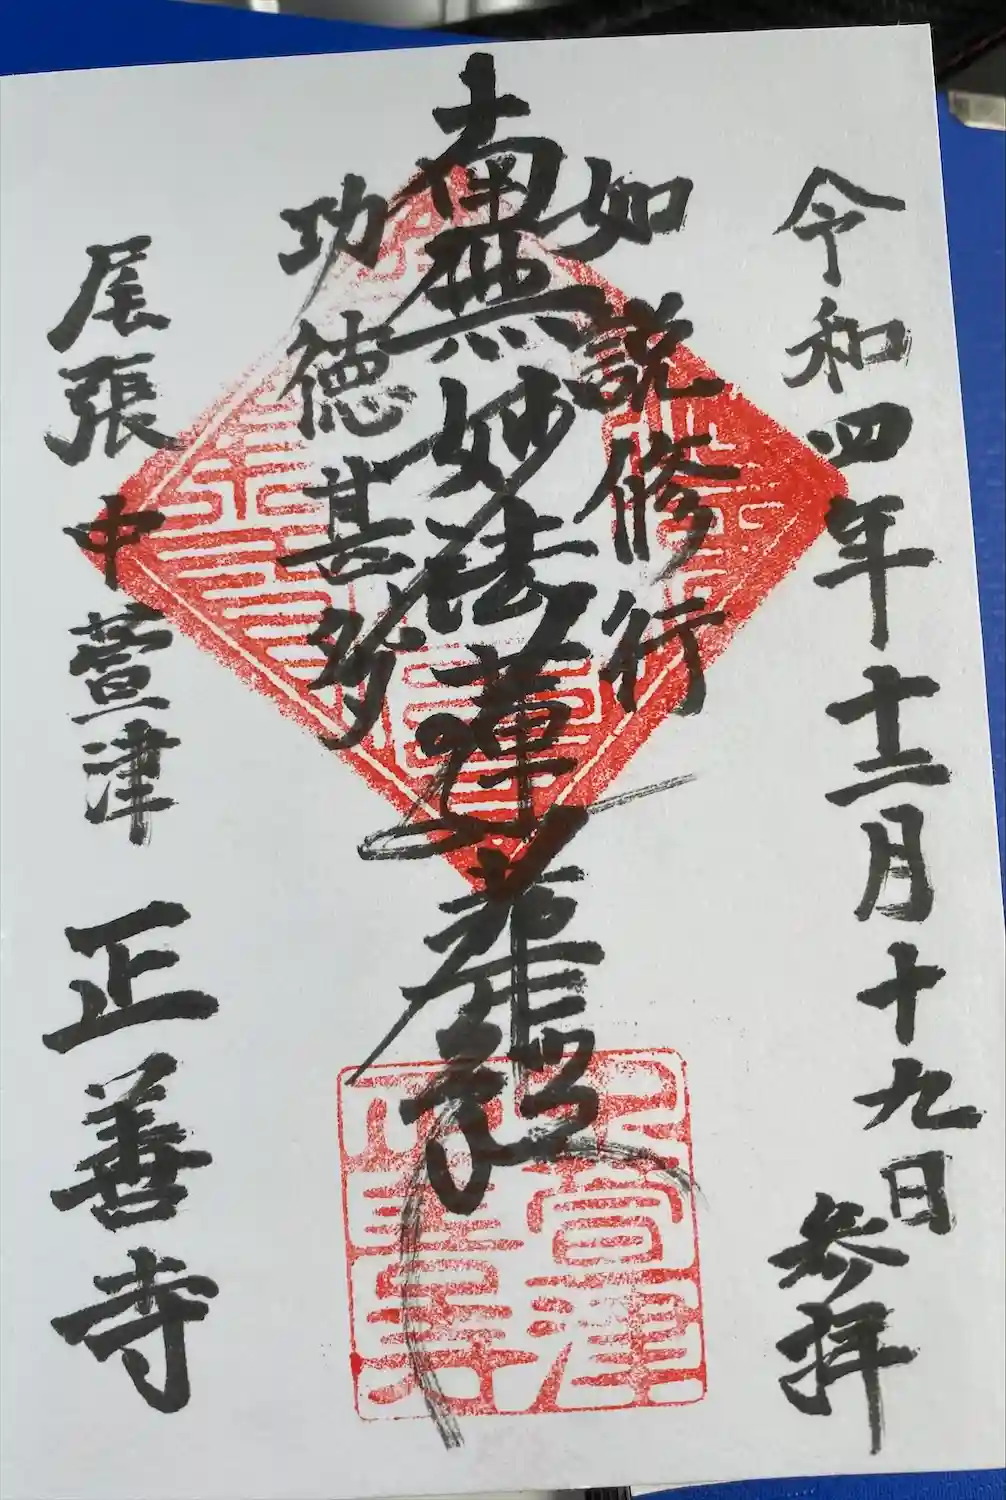 令和四年十二月十九日
参拝
如説修行
南無妙法蓮華経
功徳甚多
尾張中萱津
正善寺